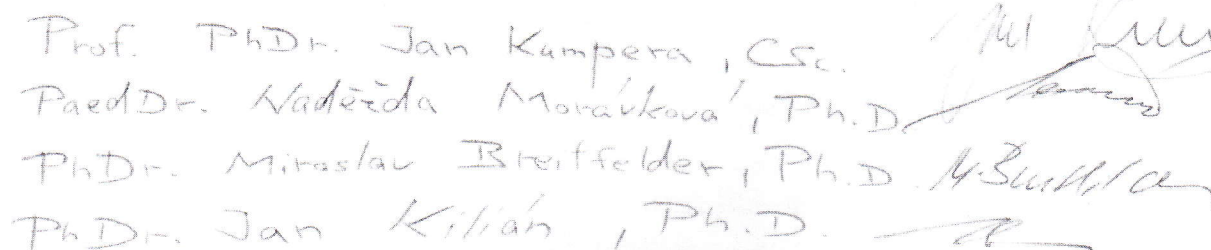 Prof. PhDr. Jan Kumpera, CSc.
PaedDr. Naděžda Morávková, Ph.D.
PhDr. Miroslav Breitfelder, Ph.D.
PhDr. Jan Kilián, Ph.D.